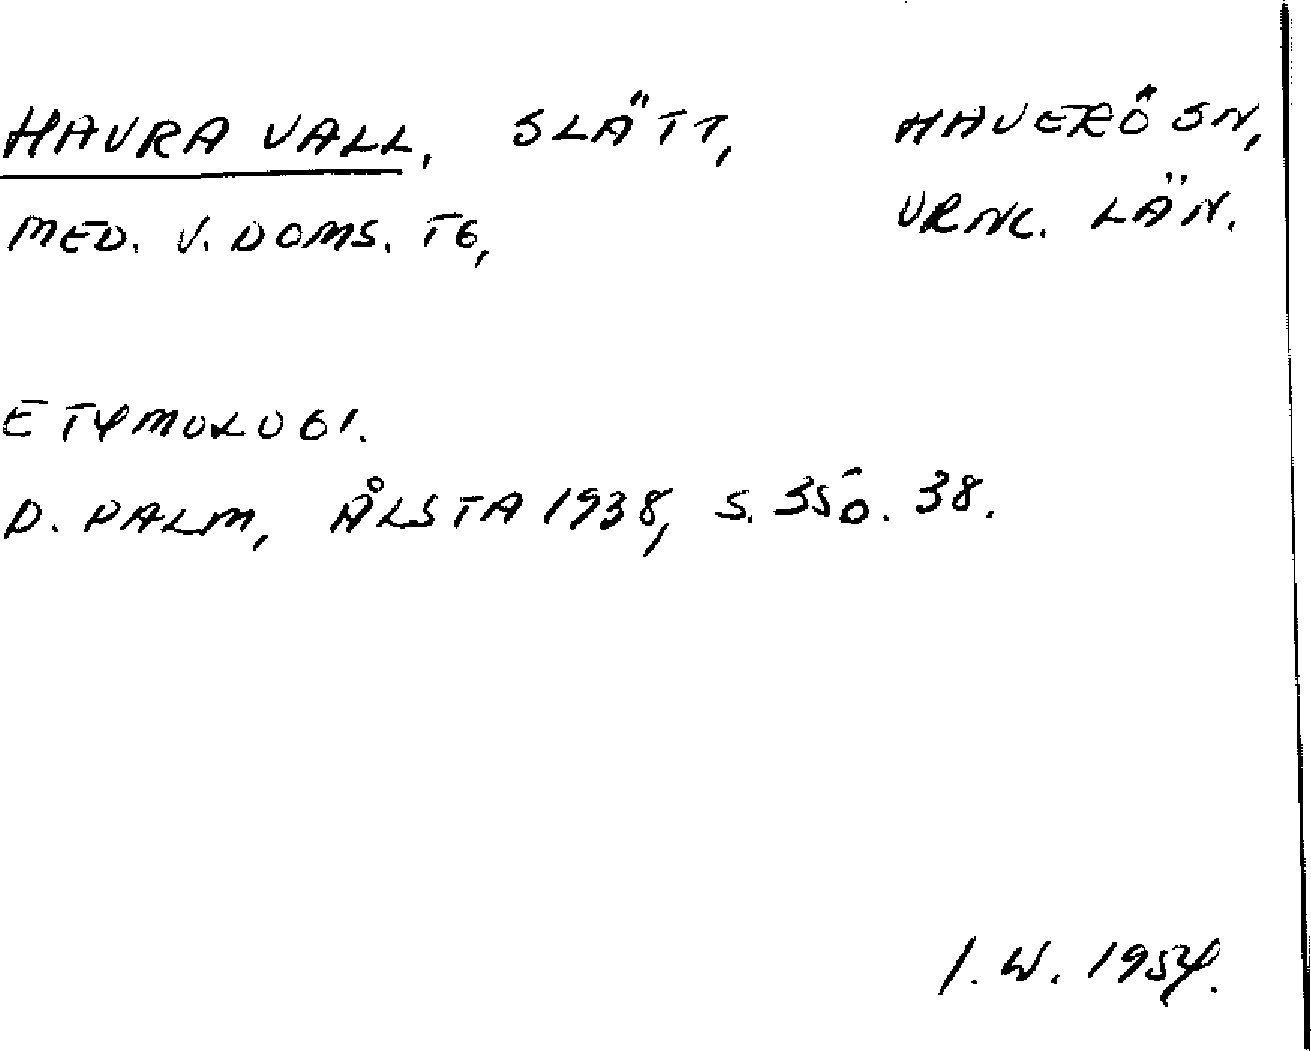 HAVRA VALL, SLÄTT, HAVERÖ SN,
MED. V. DOMS. TG, VRNL. LÄN.
ETYMOLOGI.
D. PALM, ÅLSTA 1938, S. 35 O. 38.
I. W. 1954.